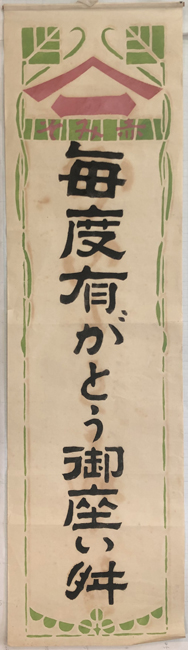 毎度有がとう御座い舛